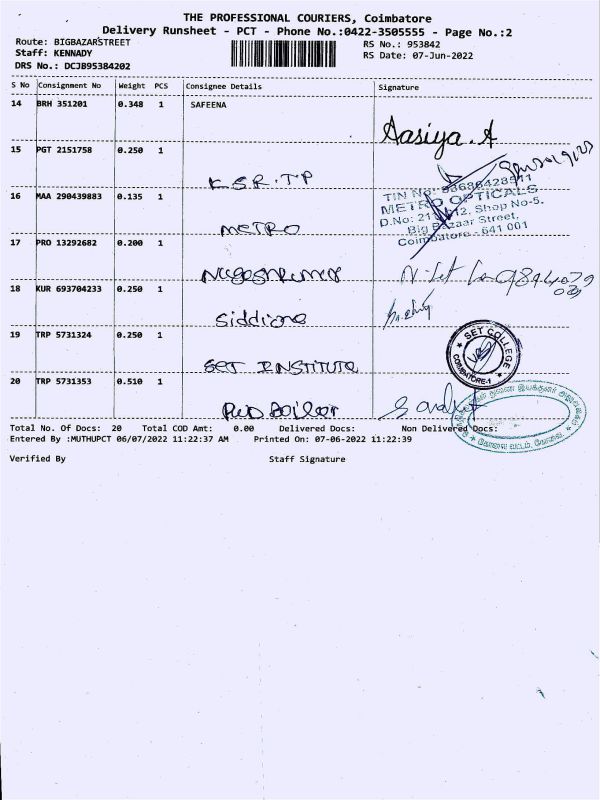 THE PROFESSIONAL COURIERS, Coimbatore
Delivery Runsheet - PCT - Phone No.:0422-3505555 - Page No.:2
Route: BIGBAZARSTREET
RS No.: 953842
Staff: KENNADY
RS Date: 07-Jun-2022
DRS No.: DCJB95384202
S No Consignment No Weight PCS Consignee Details Signature
14 BRH 351201 0.348 1 SAFEENA
Aasiya.A
15 PGT 2151758 0.250 1
K.S.R.T.P
16 MAA 290439883 0.135 1
METRO
TIN No:
METRO OPTICALS
D.No: Shop No-5,
Big Bazaar Street,
Coimbatore - 641 001
17 PRO 13292682 0.200 1
18 KUR 693704233 0.250 1
19 TRP 5731324 0.250 1
SET INSTITUTE
SET COLLEGE
COIMBATORE-1
20 TRP 5731353 0.510 1
Total No. Of Docs: 20 Total COD Amt: 0.00 Delivered Docs: Non Delivered Docs:
Entered By :MUTHUPCT 06/07/2022 11:22:37 AM Printed On: 07-06-2022 11:22:39
Verified By Staff Signature